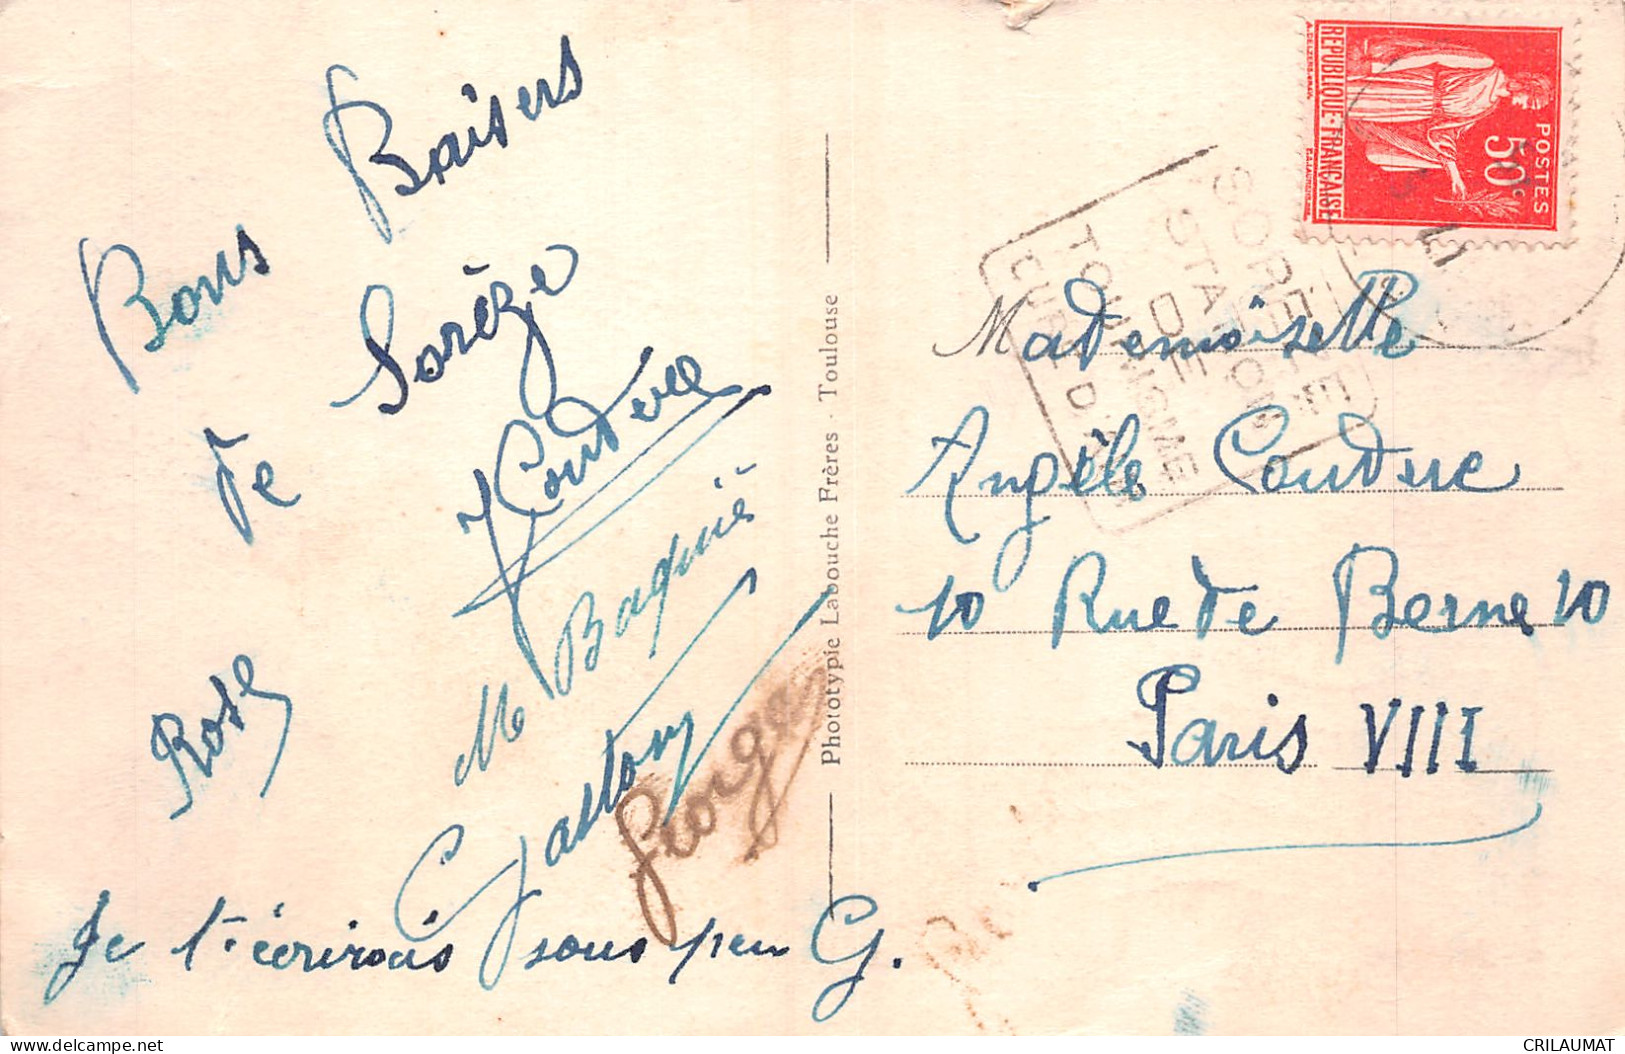 Bons Baisers
de Sorèze
Couderc
M Baquié
Rose
Gaston
Je t'écrirais sous peu G.
Phototypie Labouche Frères - Toulouse
REPUBLIQUE FRANÇAISE
POSTES
50c
SOREZE
STATION
DE
TOURISME
CURE D'AIR
Mademoiselle
Angèle Couderc
10 Rue de Berne 10
Paris VIII
delcampe.net
CRILAUMAT